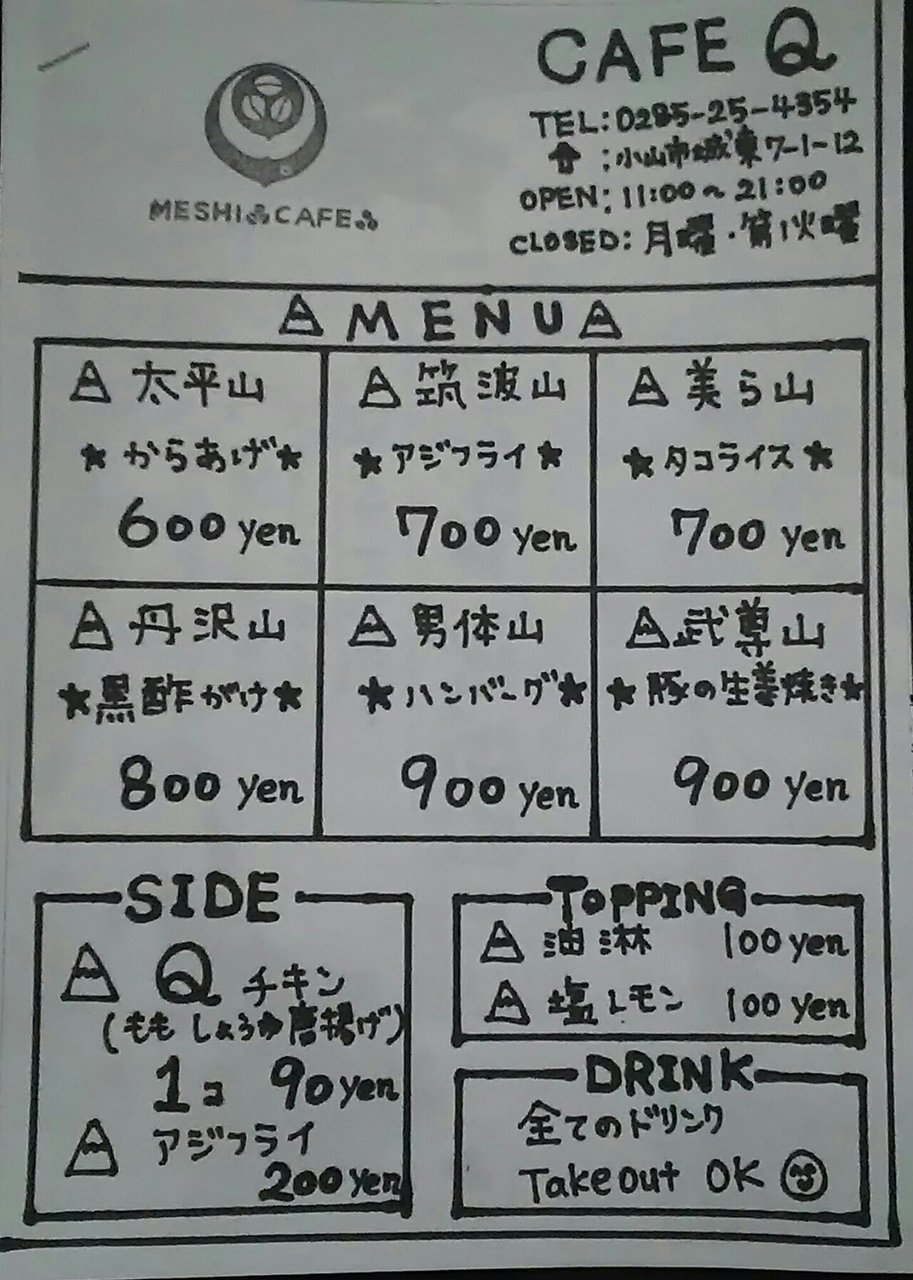 CAFE Q
TEL:0285-25-4354
:小山市城東7-1-12
OPEN:11:00~21:00
CLOSED:月曜・第1火曜
MESHI CAFE
MENU
太平山
★からあげ★
600 yen
筑波山
★アジフライ★
700 yen
美ら山
★タコライス★
700 yen
丹沢山
★黒酢がけ★
800 yen
男体山
★ハンバーグ★
900 yen
武尊山
★豚の生姜焼き★
900 yen
SIDE
Q チキン
(もも しょうゆ唐揚げ)
1コ 90yen
アジフライ
200yen
TOPPING
油淋 100yen
塩レモン 100yen
DRINK
全てのドリンク
Takeout OK